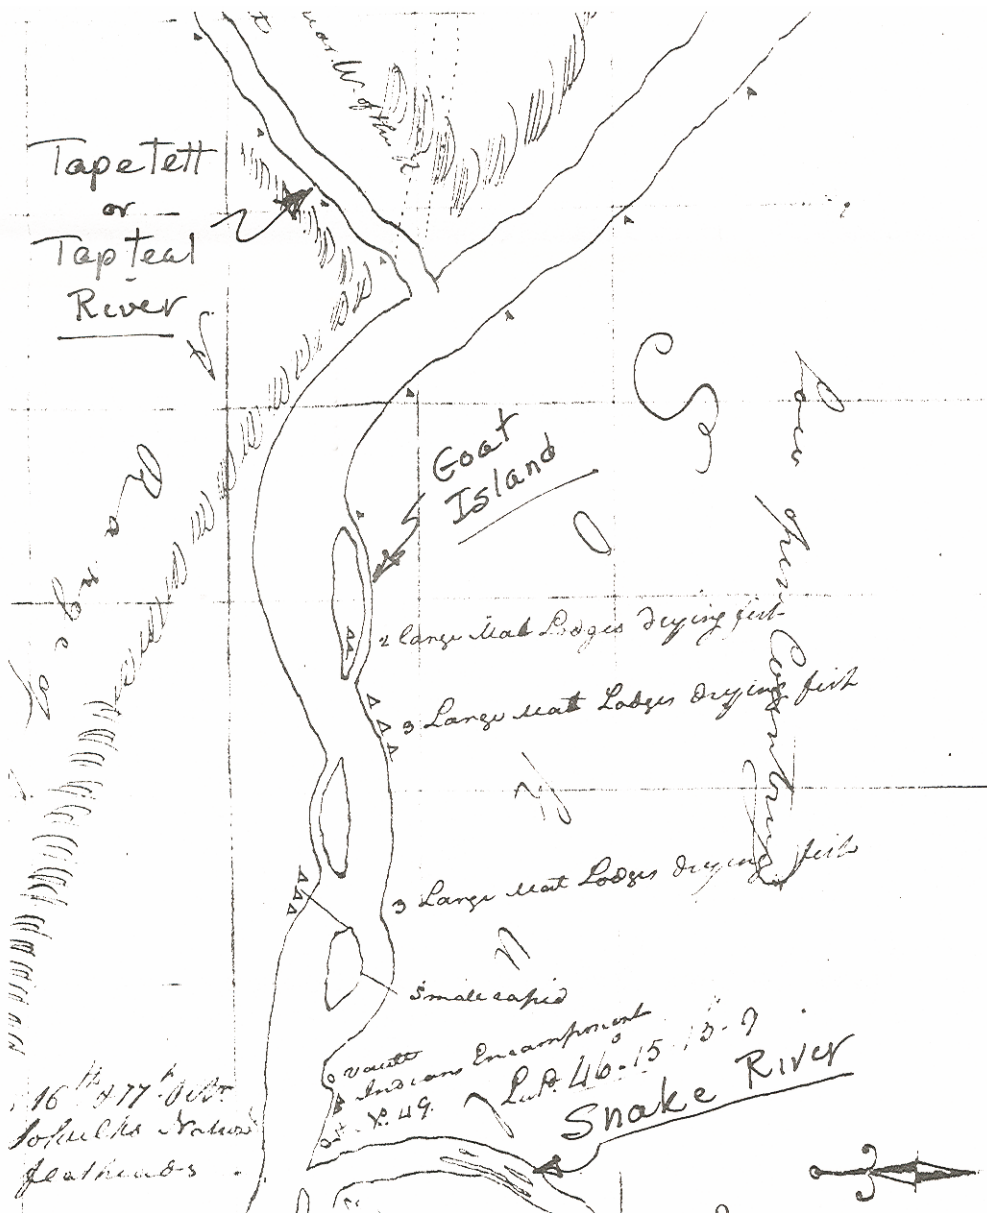 Tapetett
or
Tapteal
River
Goat
Island
Range of
Low
Country
2 large Mat Lodges drying fish
3 Large Mat Lodges drying fish
3 Large Mat Lodges drying fish
Small rapid
vault
Indians Encampment
Lat. 46°-15'-13"-9
Snake River
16th & 17th Octr
Sokulks Nation
flatheads